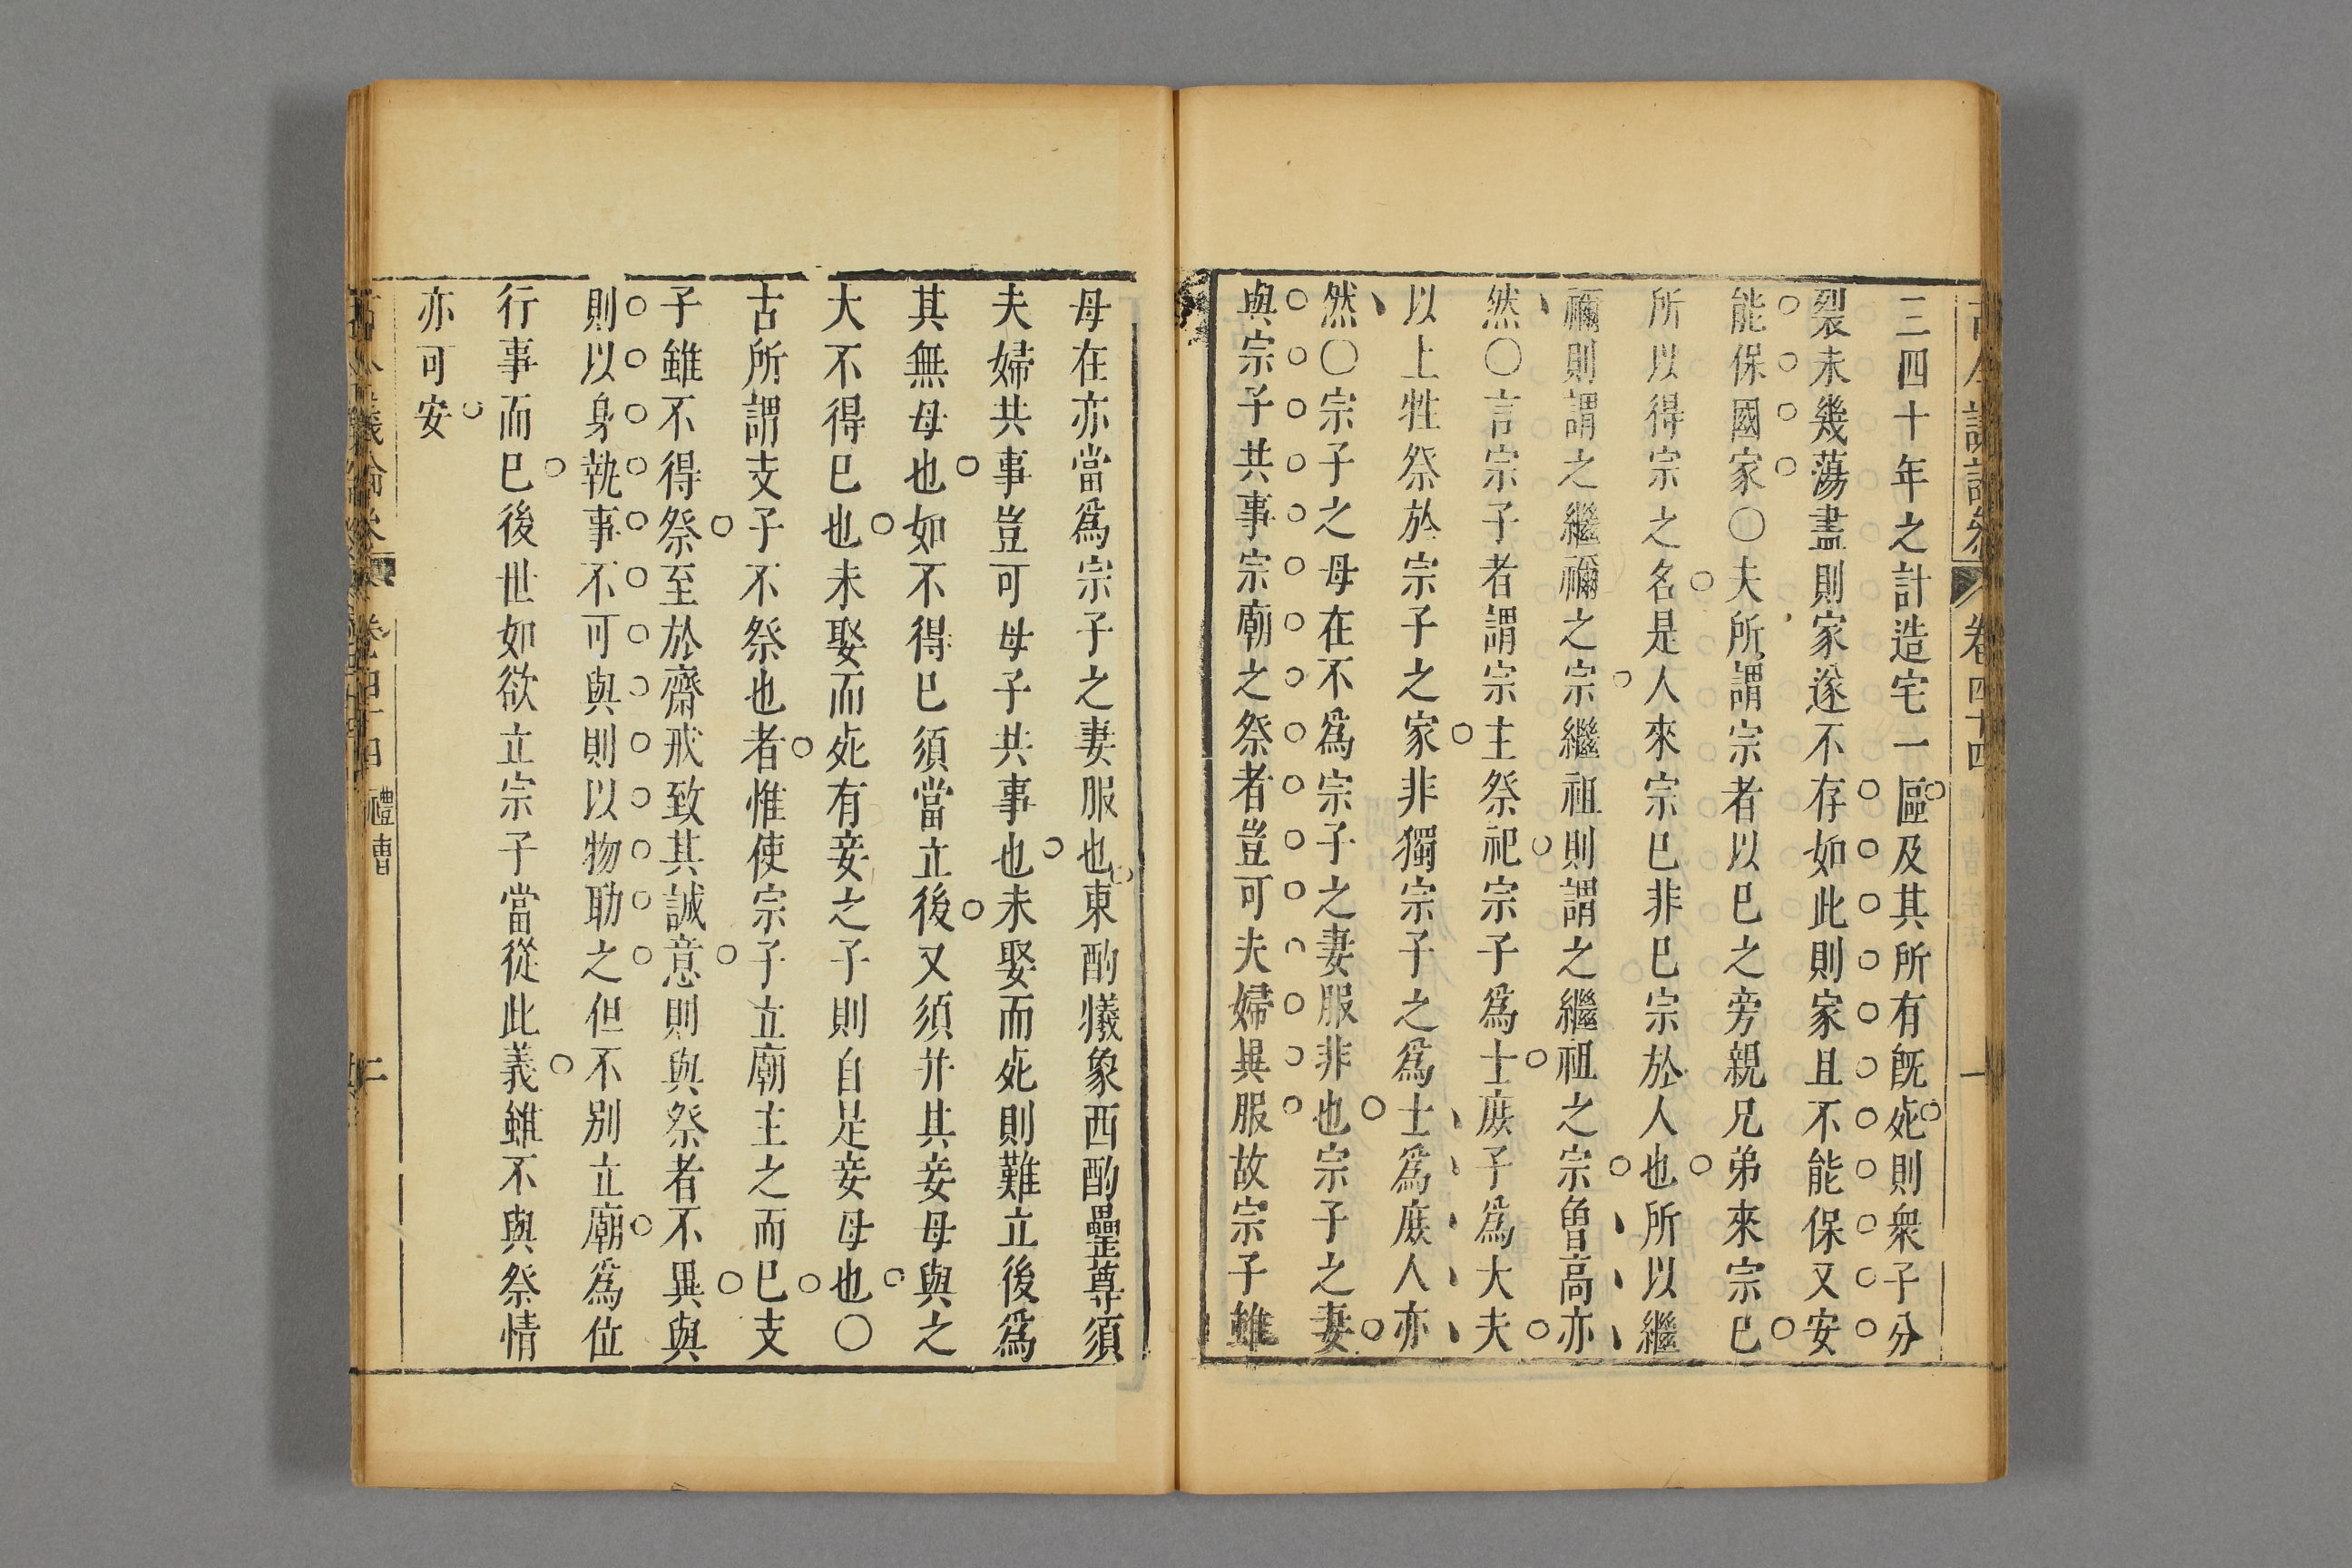 三四十年之計造宅一區及其所有旣死則衆子分
裂未幾蕩盡則家遂不存如此則家且不能保又安
能保國家〇夫所謂宗者以巳之旁親兄弟來宗巳
所以得宗之名是人來宗巳非巳宗於人也所以繼
禰則謂之繼禰之宗繼祖則謂之繼祖之宗曾高亦
然〇言宗子者謂宗主祭祀宗子爲士庶子爲大夫
以上牲祭於宗子之家非獨宗子之爲士爲庶人亦
然〇宗子之母在不爲宗子之妻服非也宗子之妻
與宗子共事宗廟之祭者豈可夫婦異服故宗子雖
母在亦當爲宗子之妻服也東酌犧象西酌罍尊須
夫婦共事豈可母子共事也未娶而死則難立後爲
其無母也如不得巳須當立後又須并其妾母與之
大不得巳也未娶而死有妾之子則自是妾母也〇
古所謂支子不祭也者惟使宗子立廟主之而巳支
子雖不得祭至於齋戒致其誠意則與祭者不異與
則以身執事不可與則以物助之但不别立廟爲位
行事而巳後世如欲立宗子當從此義雖不與祭情
亦可安
卷四十四 禮曹